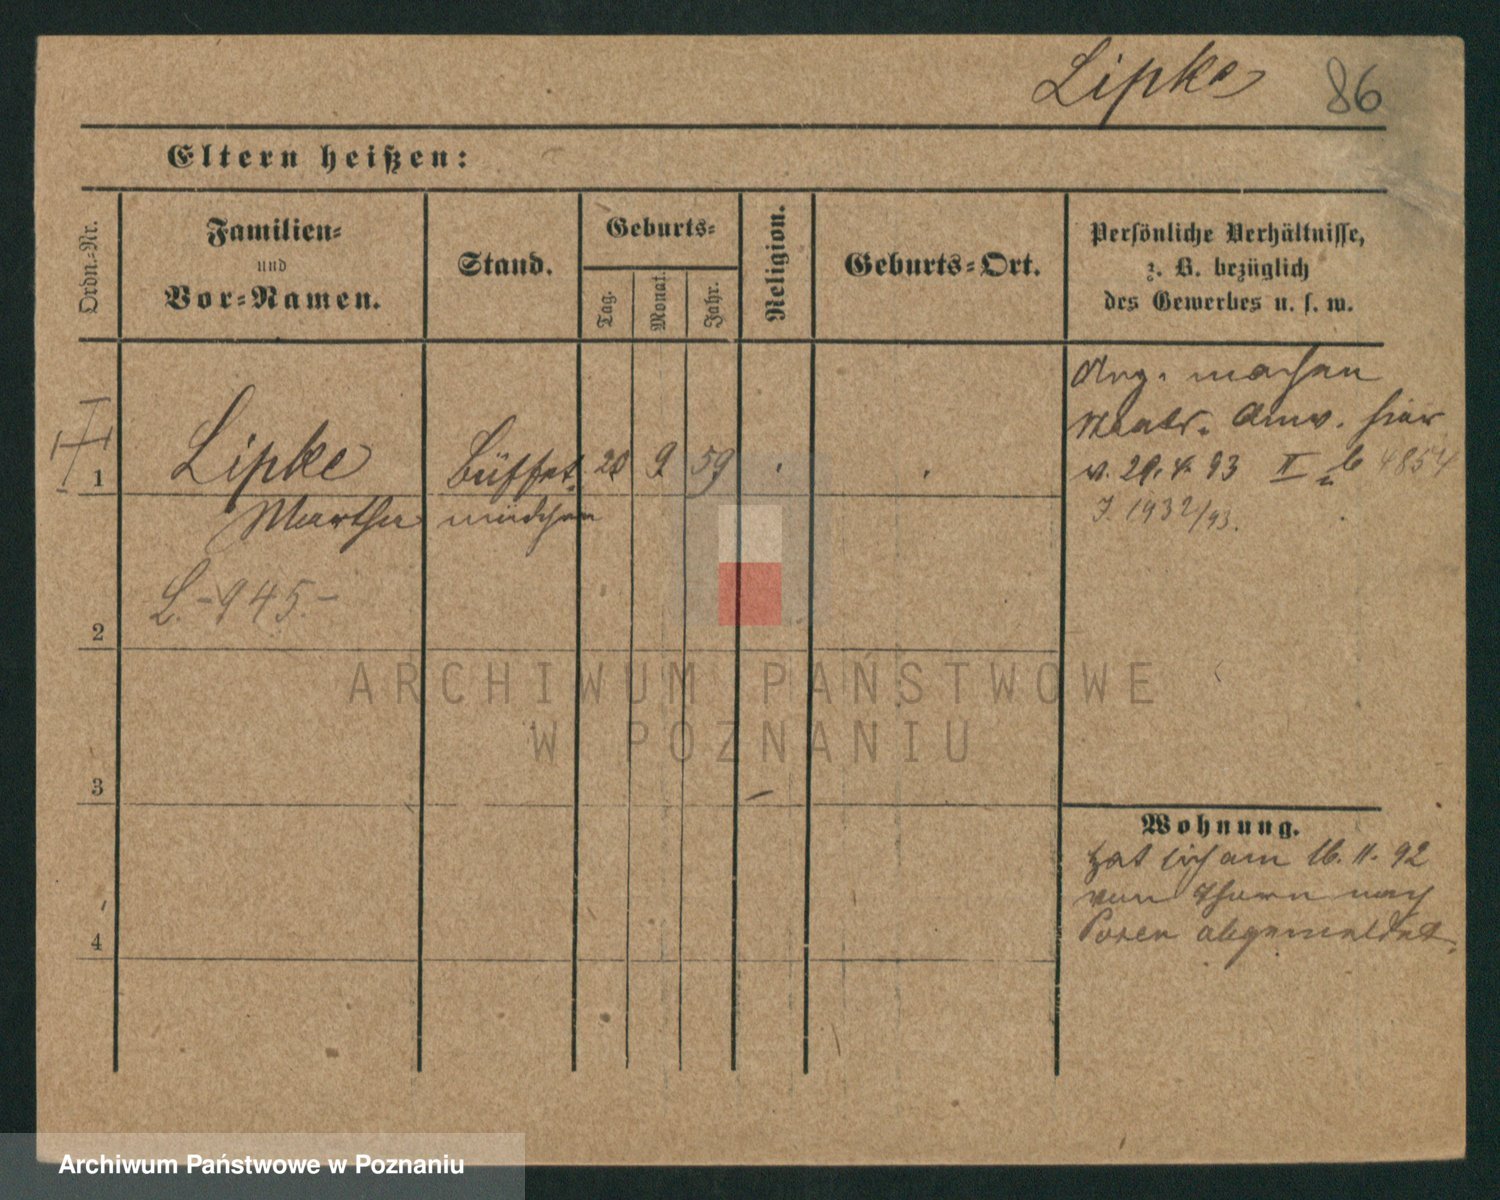 Lipke 86
Eltern heißen:
Ordn.-Nr.
Familien-
und
Vor-Namen.
Stand.
Geburts-
Tag.
Monat.
Jahr.
Religion.
Geburts-Ort.
Persönliche Verhältnisse,
z. B. bezüglich
des Gewerbes u. s. w.
1 Lipke Büffet- 20 9 59
Martha mädchen
L.-945.-
v. 29.4.93 II b 4854
J. 1932/93.
2
3
4
Wohnung.
hat sich am 16.11.92
von Thorn nach
Posen abgemeldet.
ARCHIWUM PAŃSTWOWE
W POZNANIU
Archiwum Państwowe w Poznaniu